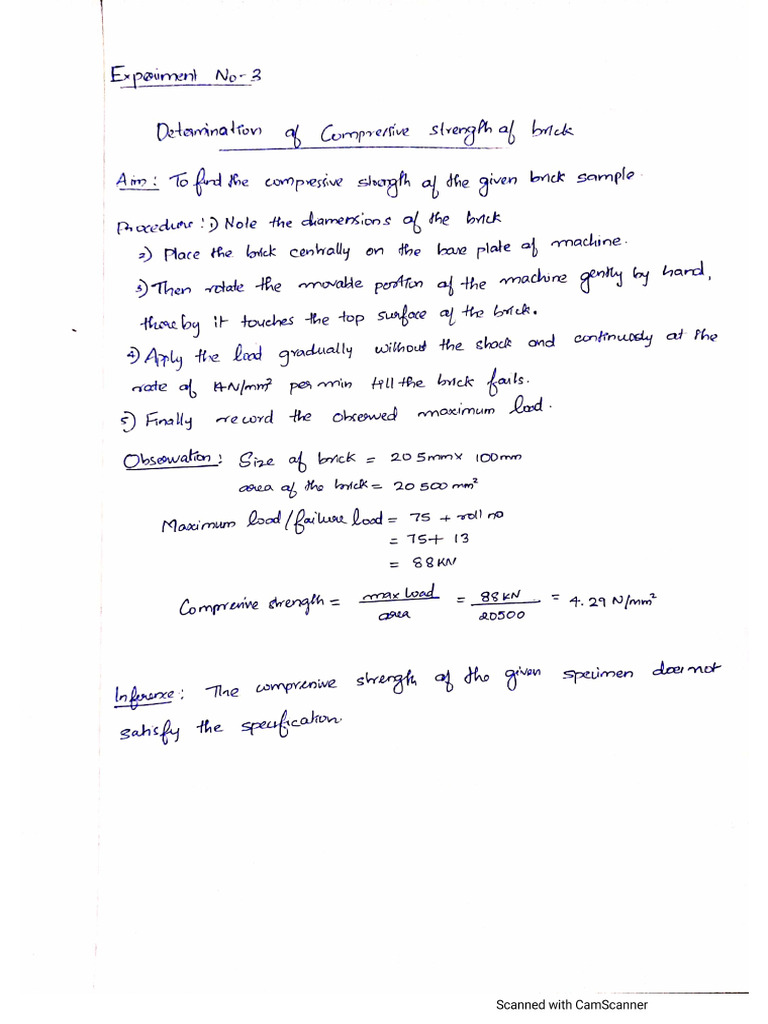 Experiment No-3
Determination of Compressive strength of brick
Aim: To find the compressive strength of the given brick sample.
Procedure: 1) Note the diamensions of the brick
2) Place the brick centrally on the base plate of machine.
3) Then rotate the movable portion of the machine gently by hand,
there by it touches the top surface of the brick.
4) Apply the load gradually without the shock and continuously at the
rate of 14N/mm² per min till the brick fails.
5) Finally record the observed maximum load.
Observation: Size of brick = 205mm x 100mm
area of the brick = 20500 mm²
Maximum load/failure load = 75 + roll no
= 75+ 13
= 88KN
Compressive strength = max load / area = 88KN / 20500 = 4.29 N/mm²
Inference: The compressive strength of the given specimen does not
satisfy the specification.
Scanned with CamScanner